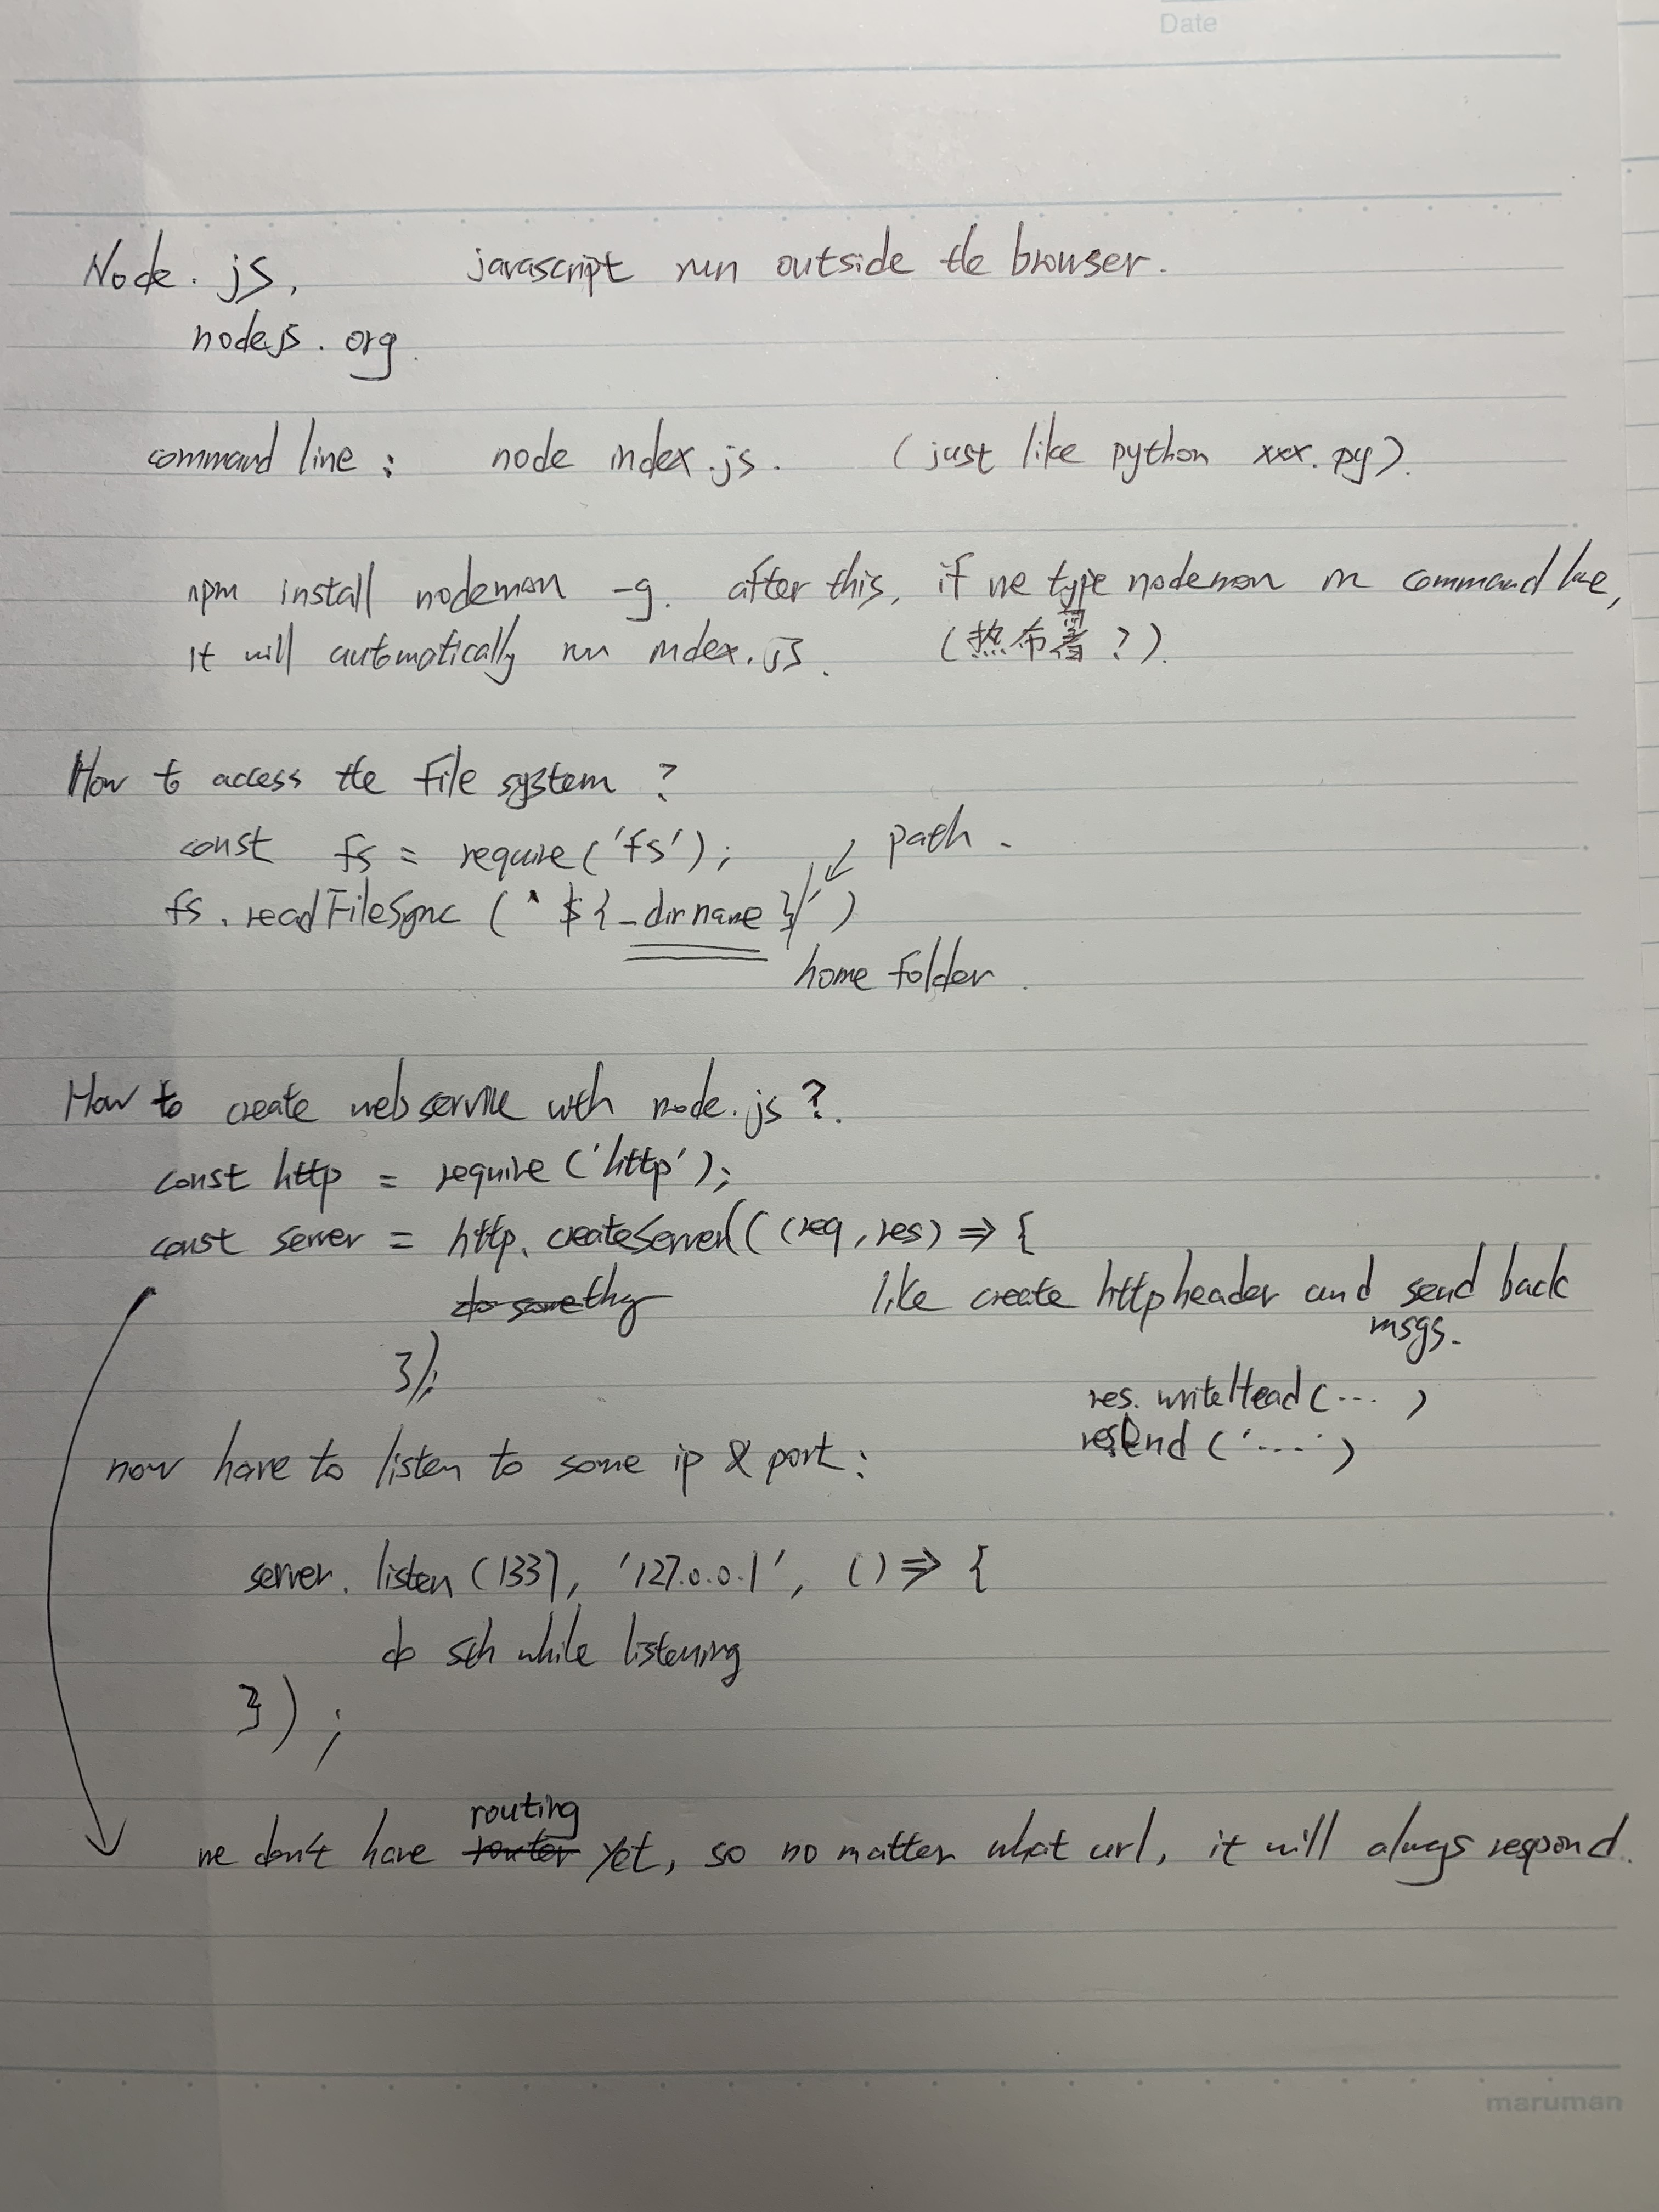 Date
Node.js, javascript run outside the browser.
nodejs.org.
command line: node index.js. (just like python xxx.py).
npm install nodemon -g. after this, if we type nodemon in command line,
it will automatically run index.js. (热布署?).
How to access the file system?
const fs = require('fs'); path.
fs.readFileSync(`${_dirname}/`)
home folder.
How to create web service with node.js?.
const http = require('http');
const server = http.createServer((req, res) => {
do something like create http header and send back
msgs.
});
res.writeHead(... )
res.End('....')
now have to listen to some ip & port:
server.listen(1337, '127.0.0.1', () => {
do sth while listening
});
routing
we don't have router yet, so no matter what url, it will always respond.
maruman